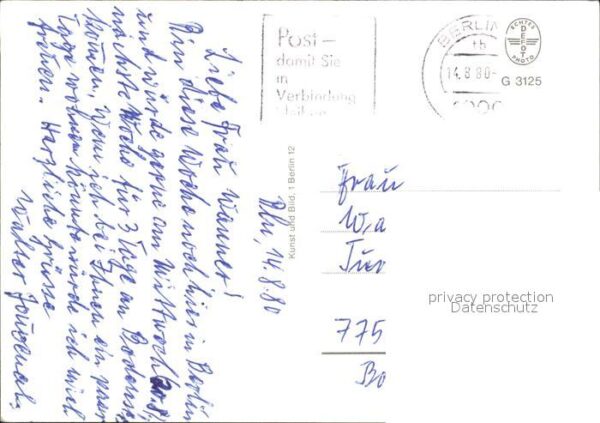 Bln, 14.8.80
Liebe Frau Wanner!
Bin diese Woche noch hier in Berlin
und würde gerne am Mittwoch (20.8.)
nächste Woche für 3 Tage an Bodensee
kommen, wenn ich bei Ihnen ein paar
Tage wohnen könnte würde ich mich
freuen. Herzliche Grüsse
Walter
Kunst und Bild, 1 Berlin 12
Post –
damit Sie
in
Verbindung
bleiben
BERLIN
14.8.80
ECHTES
DEPOT
PHOTO
G 3125
Frau
Wa
775
Bo
privacy protection
Datenschutz